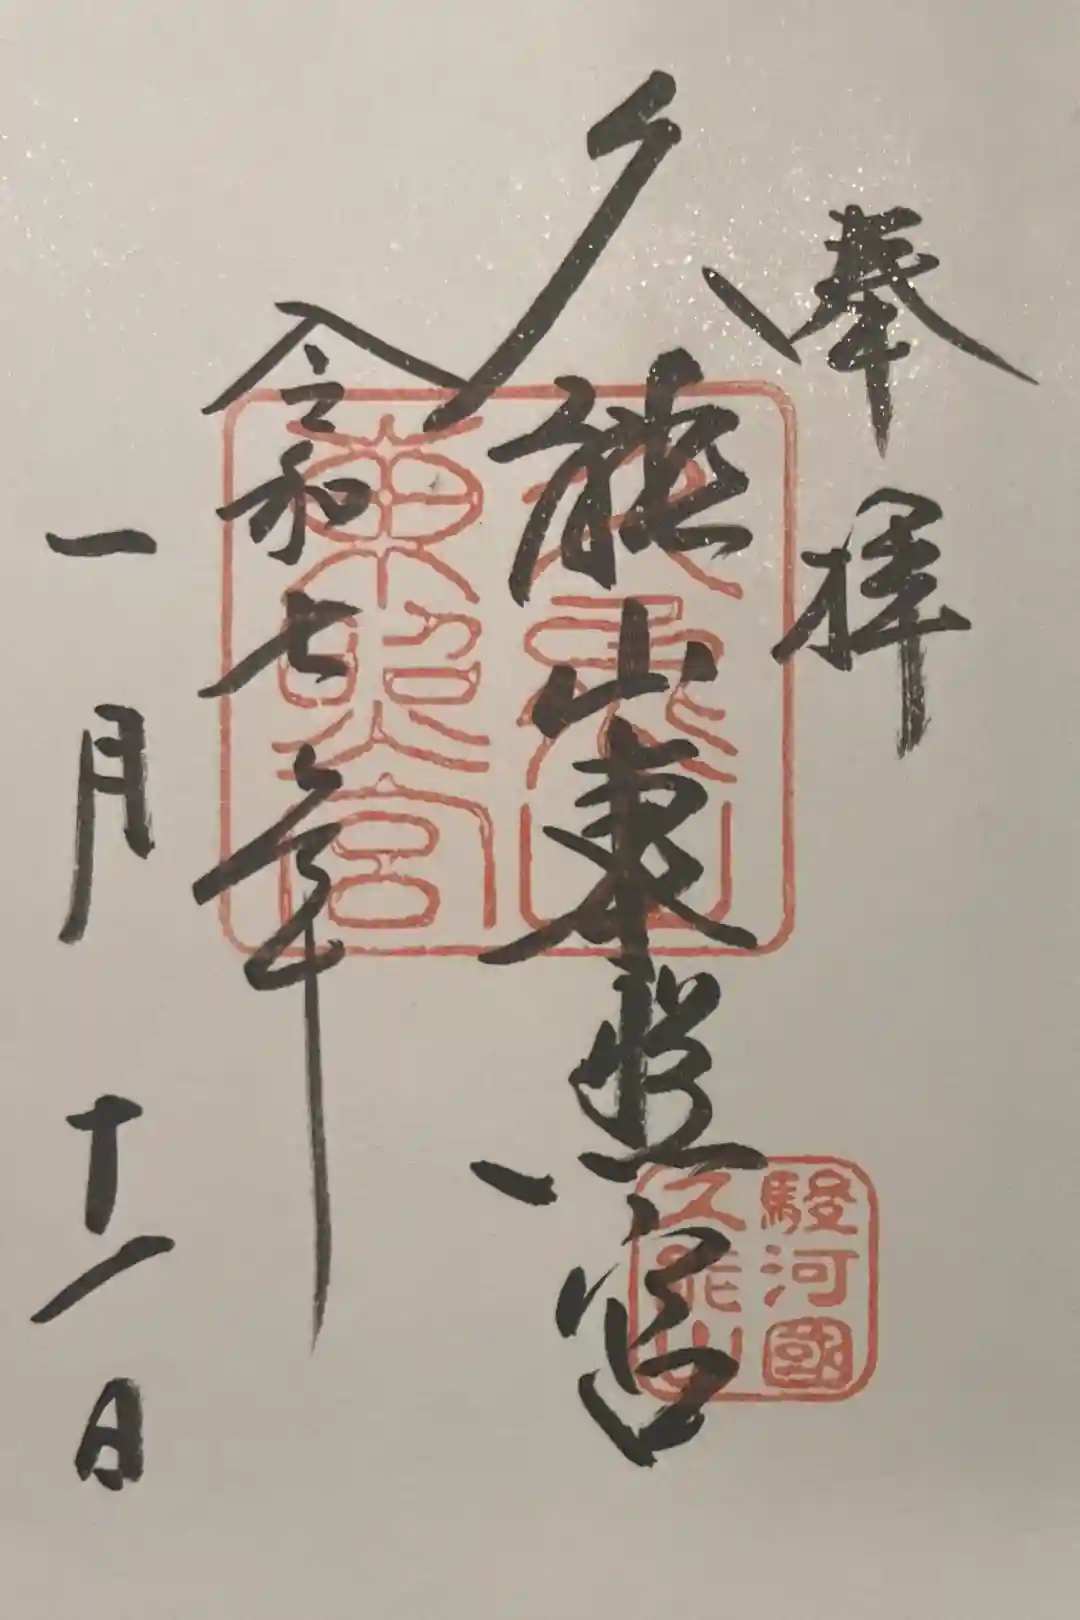 奉拝
久能山東照宮
令和七年
一月十一日
久能山
東照宮
駿河國
久能山